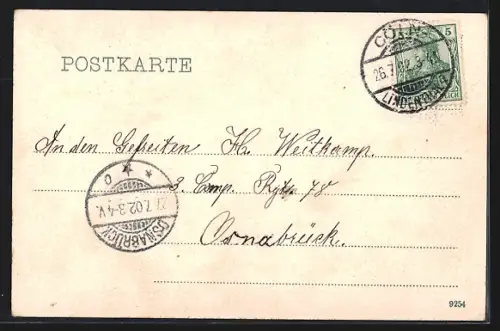 CÖLN
5
26.7.02. 5-6N
LINDENTHAL
REICH
POSTKARTE
An den Gefreiten H. Weitkamp.
3. Comp. Rgts 78
Osnabrück.
27.7.02.3-4V.
OSNABRÜCK
9254